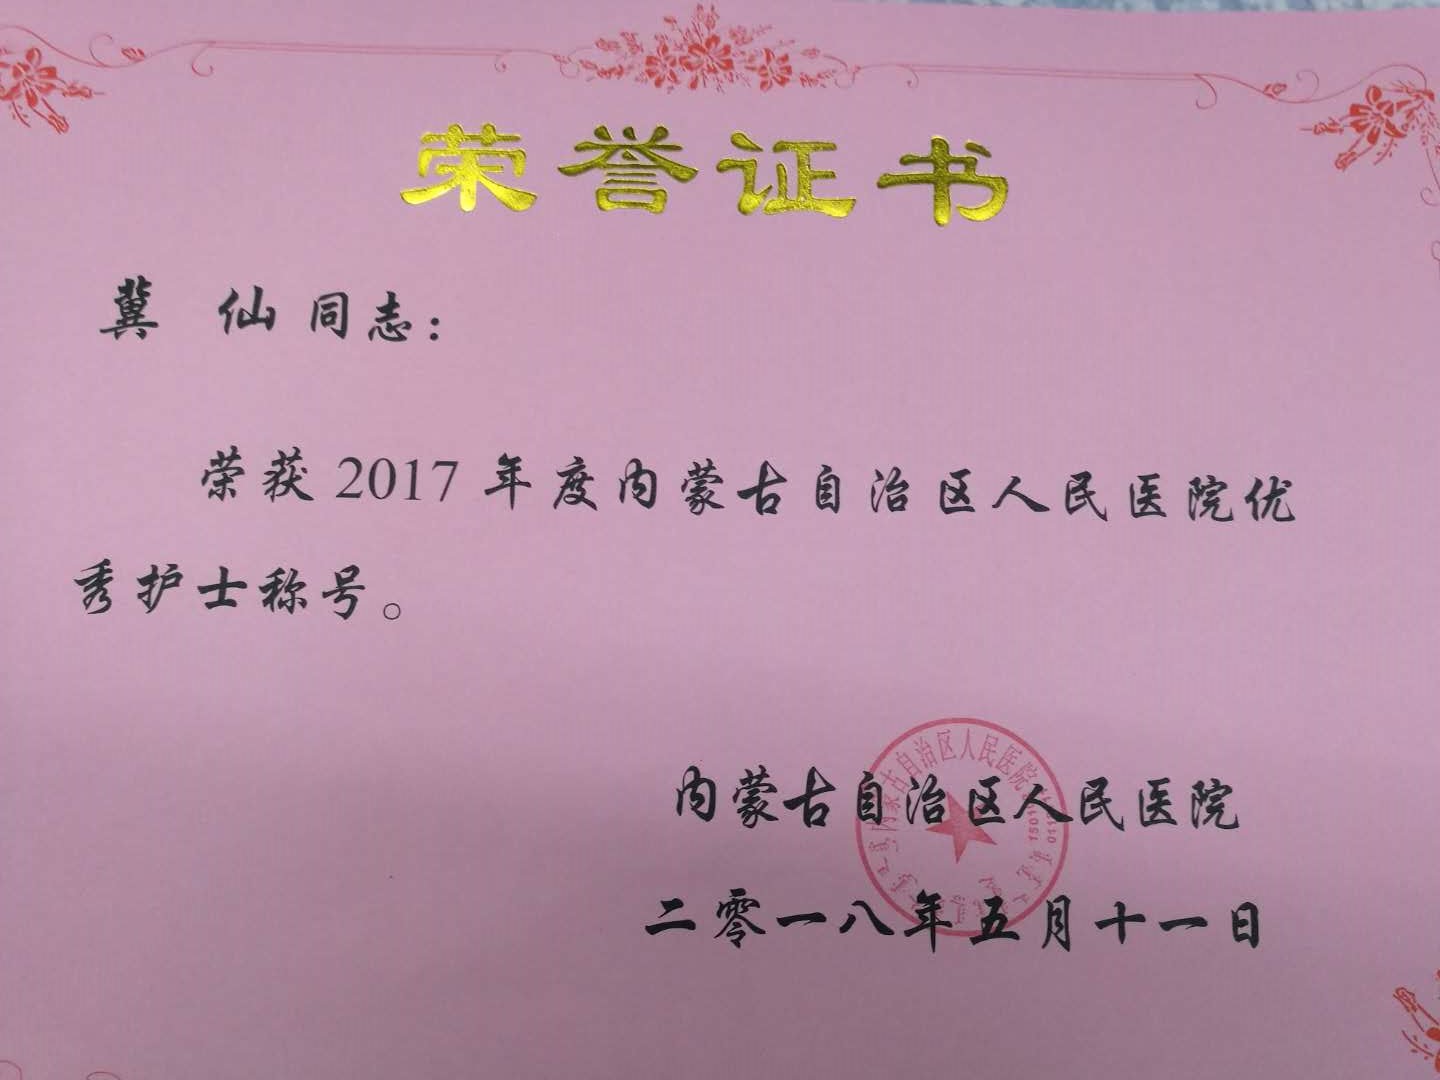 荣誉证书
冀 仙 同志：
荣获 2017 年度内蒙古自治区人民医院优
秀护士称号。
内蒙古自治区人民医院
内蒙古自治区人民医院
二零一八年五月十一日